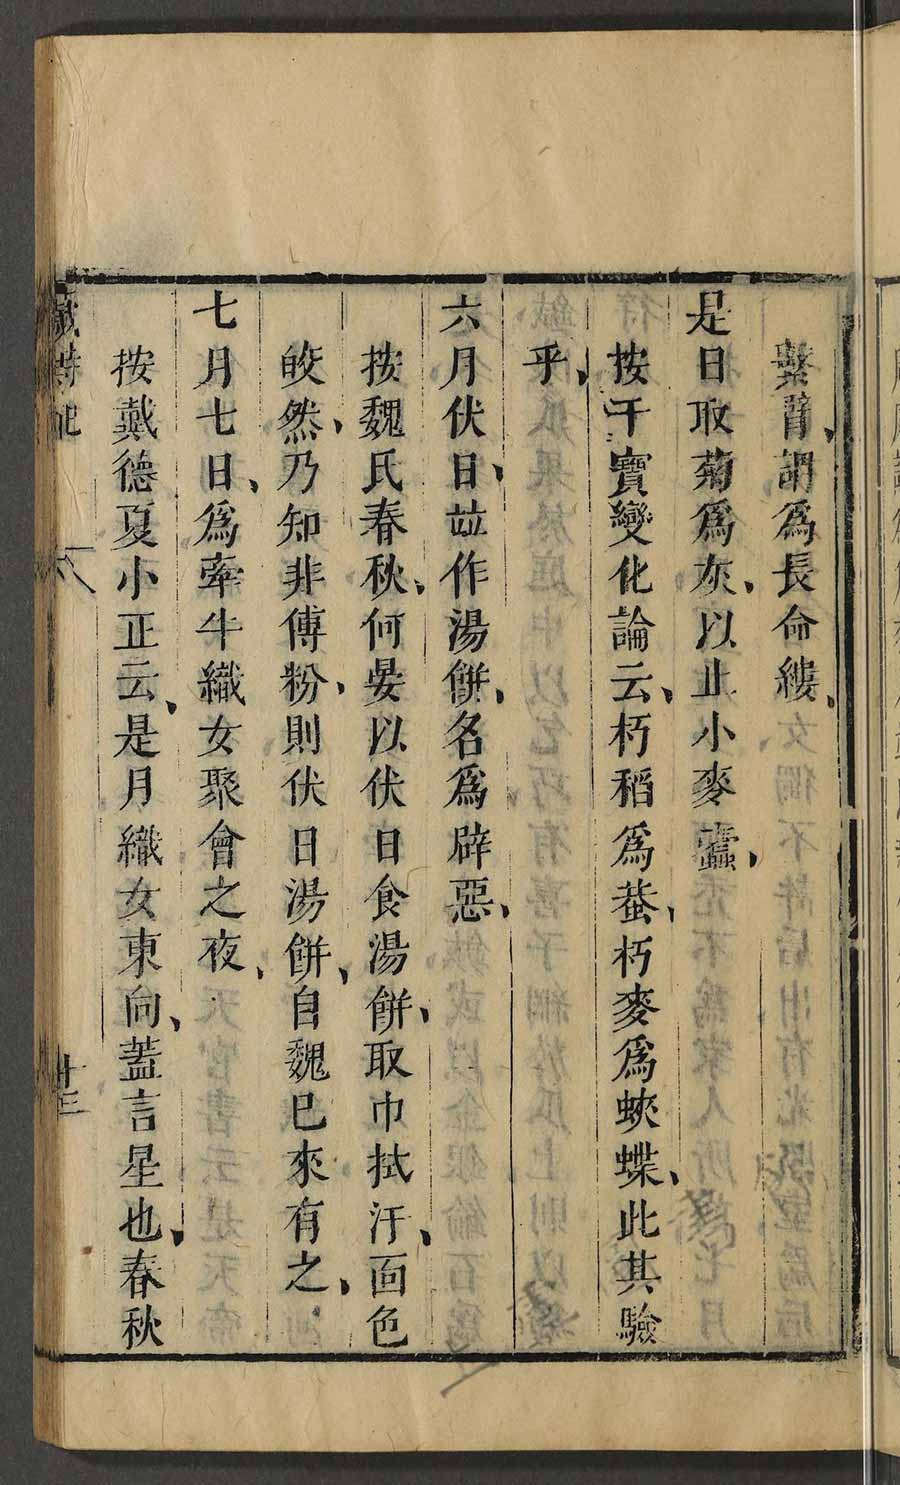 繫臂、謂爲長命縷、
是日取菊爲灰、以止小麥蠹、
按干寶變化論云、朽稻爲蛬、朽麥爲蛺蝶、此其驗
乎、
六月伏日、竝作湯餅、名爲辟惡、
按魏氏春秋、何晏以伏日食湯餅、取巾拭汗、面色
皎然、乃知非傅粉、則伏日湯餅、自魏已來有之、
七月七日、爲牽牛織女聚會之夜、
按戴德夏小正云、是月織女東向、蓋言星也、春秋
歲時記
十三